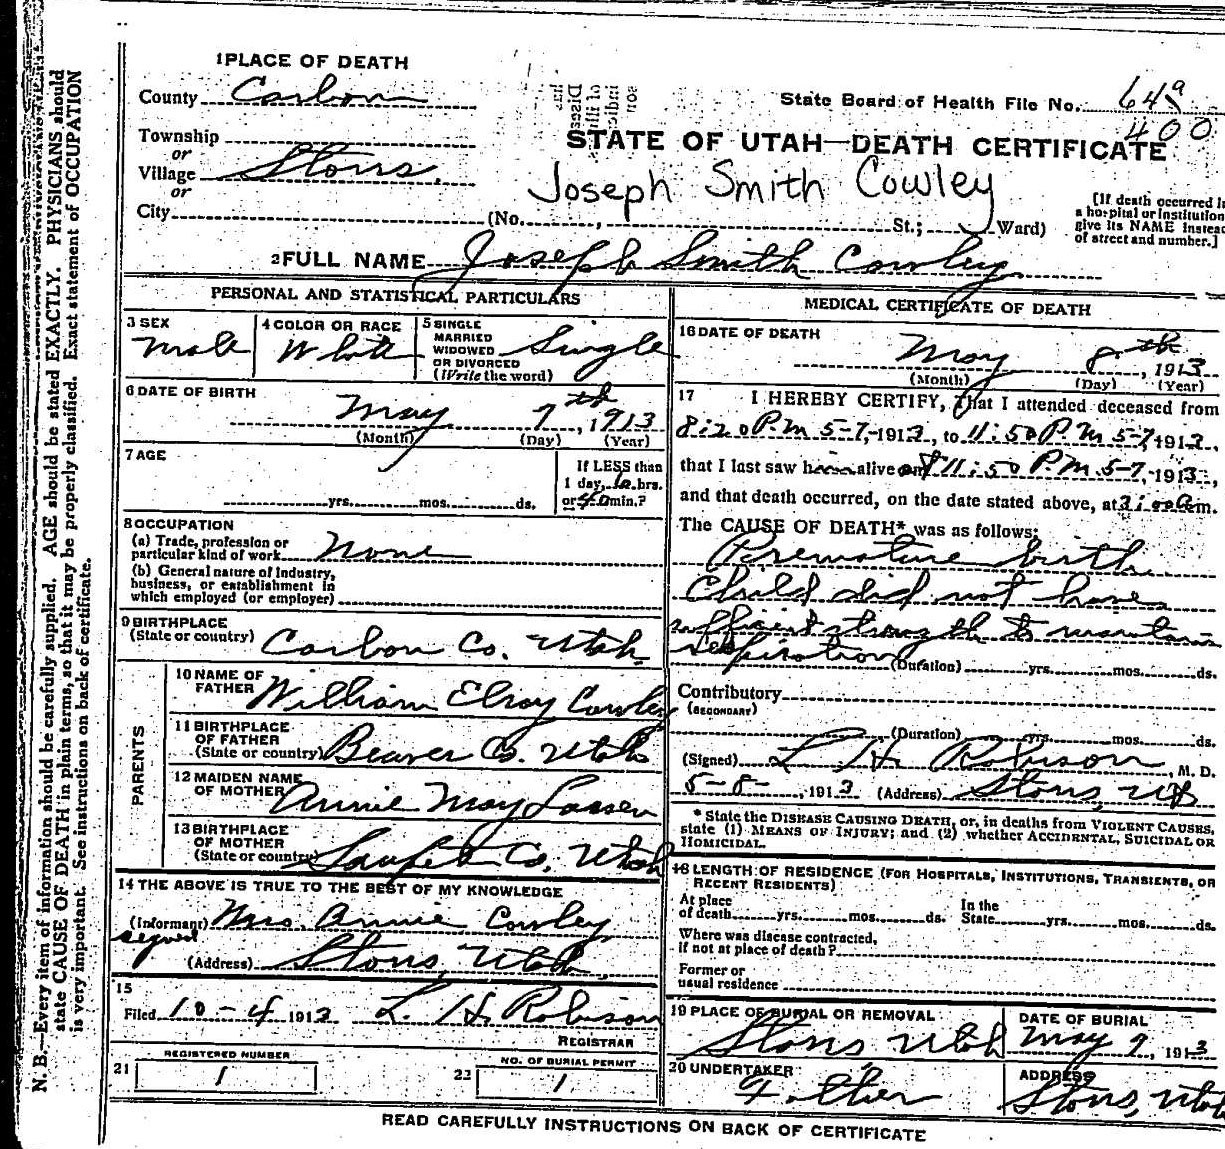 N. B.—Every item of information should be carefully supplied. AGE should be stated EXACTLY. PHYSICIANS should
state CAUSE OF DEATH in plain terms, so that it may be properly classified. Exact statement of OCCUPATION
is very important. See instructions on back of certificate.
1 PLACE OF DEATH
County Carbon
State Board of Health File No. 64a
400
Township
or
Village Stors.
or
STATE OF UTAH—DEATH CERTIFICATE
Joseph Smith Cowley
City (No. , St.; Ward)
[If death occurred in
a hospital or institution
give its NAME instead
of street and number.]
2 FULL NAME Joseph Smith Cowley
PERSONAL AND STATISTICAL PARTICULARS
3 SEX
Male
4 COLOR OR RACE
White
5 SINGLE
MARRIED
WIDOWED
OR DIVORCED
(Write the word)
Single
6 DATE OF BIRTH
May 7th, 1913
(Month) (Day) (Year)
7 AGE
yrs. mos. ds.
If LESS than
1 day, 6 hrs.
or 40 min.?
8 OCCUPATION
(a) Trade, profession or
particular kind of work None
(b) General nature of Industry,
business, or establishment in
which employed (or employer)
9 BIRTHPLACE
(State or country) Carbon Co. Utah
PARENTS
10 NAME OF
FATHER William Elroy Cowley
11 BIRTHPLACE
OF FATHER
(State or country) Beaver Co. Utah
12 MAIDEN NAME
OF MOTHER Annie May Lassen
13 BIRTHPLACE
OF MOTHER
(State or country) Sanpete Co, Utah
14 THE ABOVE IS TRUE TO THE BEST OF MY KNOWLEDGE
(Informant) Mrs. Annie Cowley
signed
(Address) Stors, Utah
15
Filed 10-4 1913 L. H. Robison
REGISTRAR
REGISTERED NUMBER
21 1
NO. OF BURIAL PERMIT
22 1
MEDICAL CERTIFICATE OF DEATH
16 DATE OF DEATH
May 8th, 1913
(Month) (Day) (Year)
17 I HEREBY CERTIFY, that I attended deceased from
8:20 P.M 5-7, 1913, to 11:50 P.M 5-7, 1913,
that I last saw h alive 11:50 P.M. 5-7, 1913,
and that death occurred, on the date stated above, at 3:00 a m.
The CAUSE OF DEATH* was as follows:
Premature birth.
Child did not have
sufficient strength to maintain
respiration (Duration) yrs. mos. ds.
Contributory
(SECONDARY)
(Duration) yrs. mos. ds.
(Signed) L H Robison, M. D.
5-8-, 1913 (Address) Stors, Ut
* State the DISEASE CAUSING DEATH, or, in deaths from VIOLENT CAUSES,
state (1) MEANS OF INJURY; and (2) whether ACCIDENTAL, SUICIDAL OR
HOMICIDAL.
18 LENGTH OF RESIDENCE (FOR HOSPITALS, INSTITUTIONS, TRANSIENTS, OR
RECENT RESIDENTS)
At place
of death yrs. mos. ds.
In the
State yrs. mos. ds.
Where was disease contracted,
if not at place of death?
Former or
usual residence
19 PLACE OF BURIAL OR REMOVAL
Stors Utah
DATE OF BURIAL
May 9, 1913
20 UNDERTAKER
Father
ADDRESS
Stors, Utah
READ CAREFULLY INSTRUCTIONS ON BACK OF CERTIFICATE